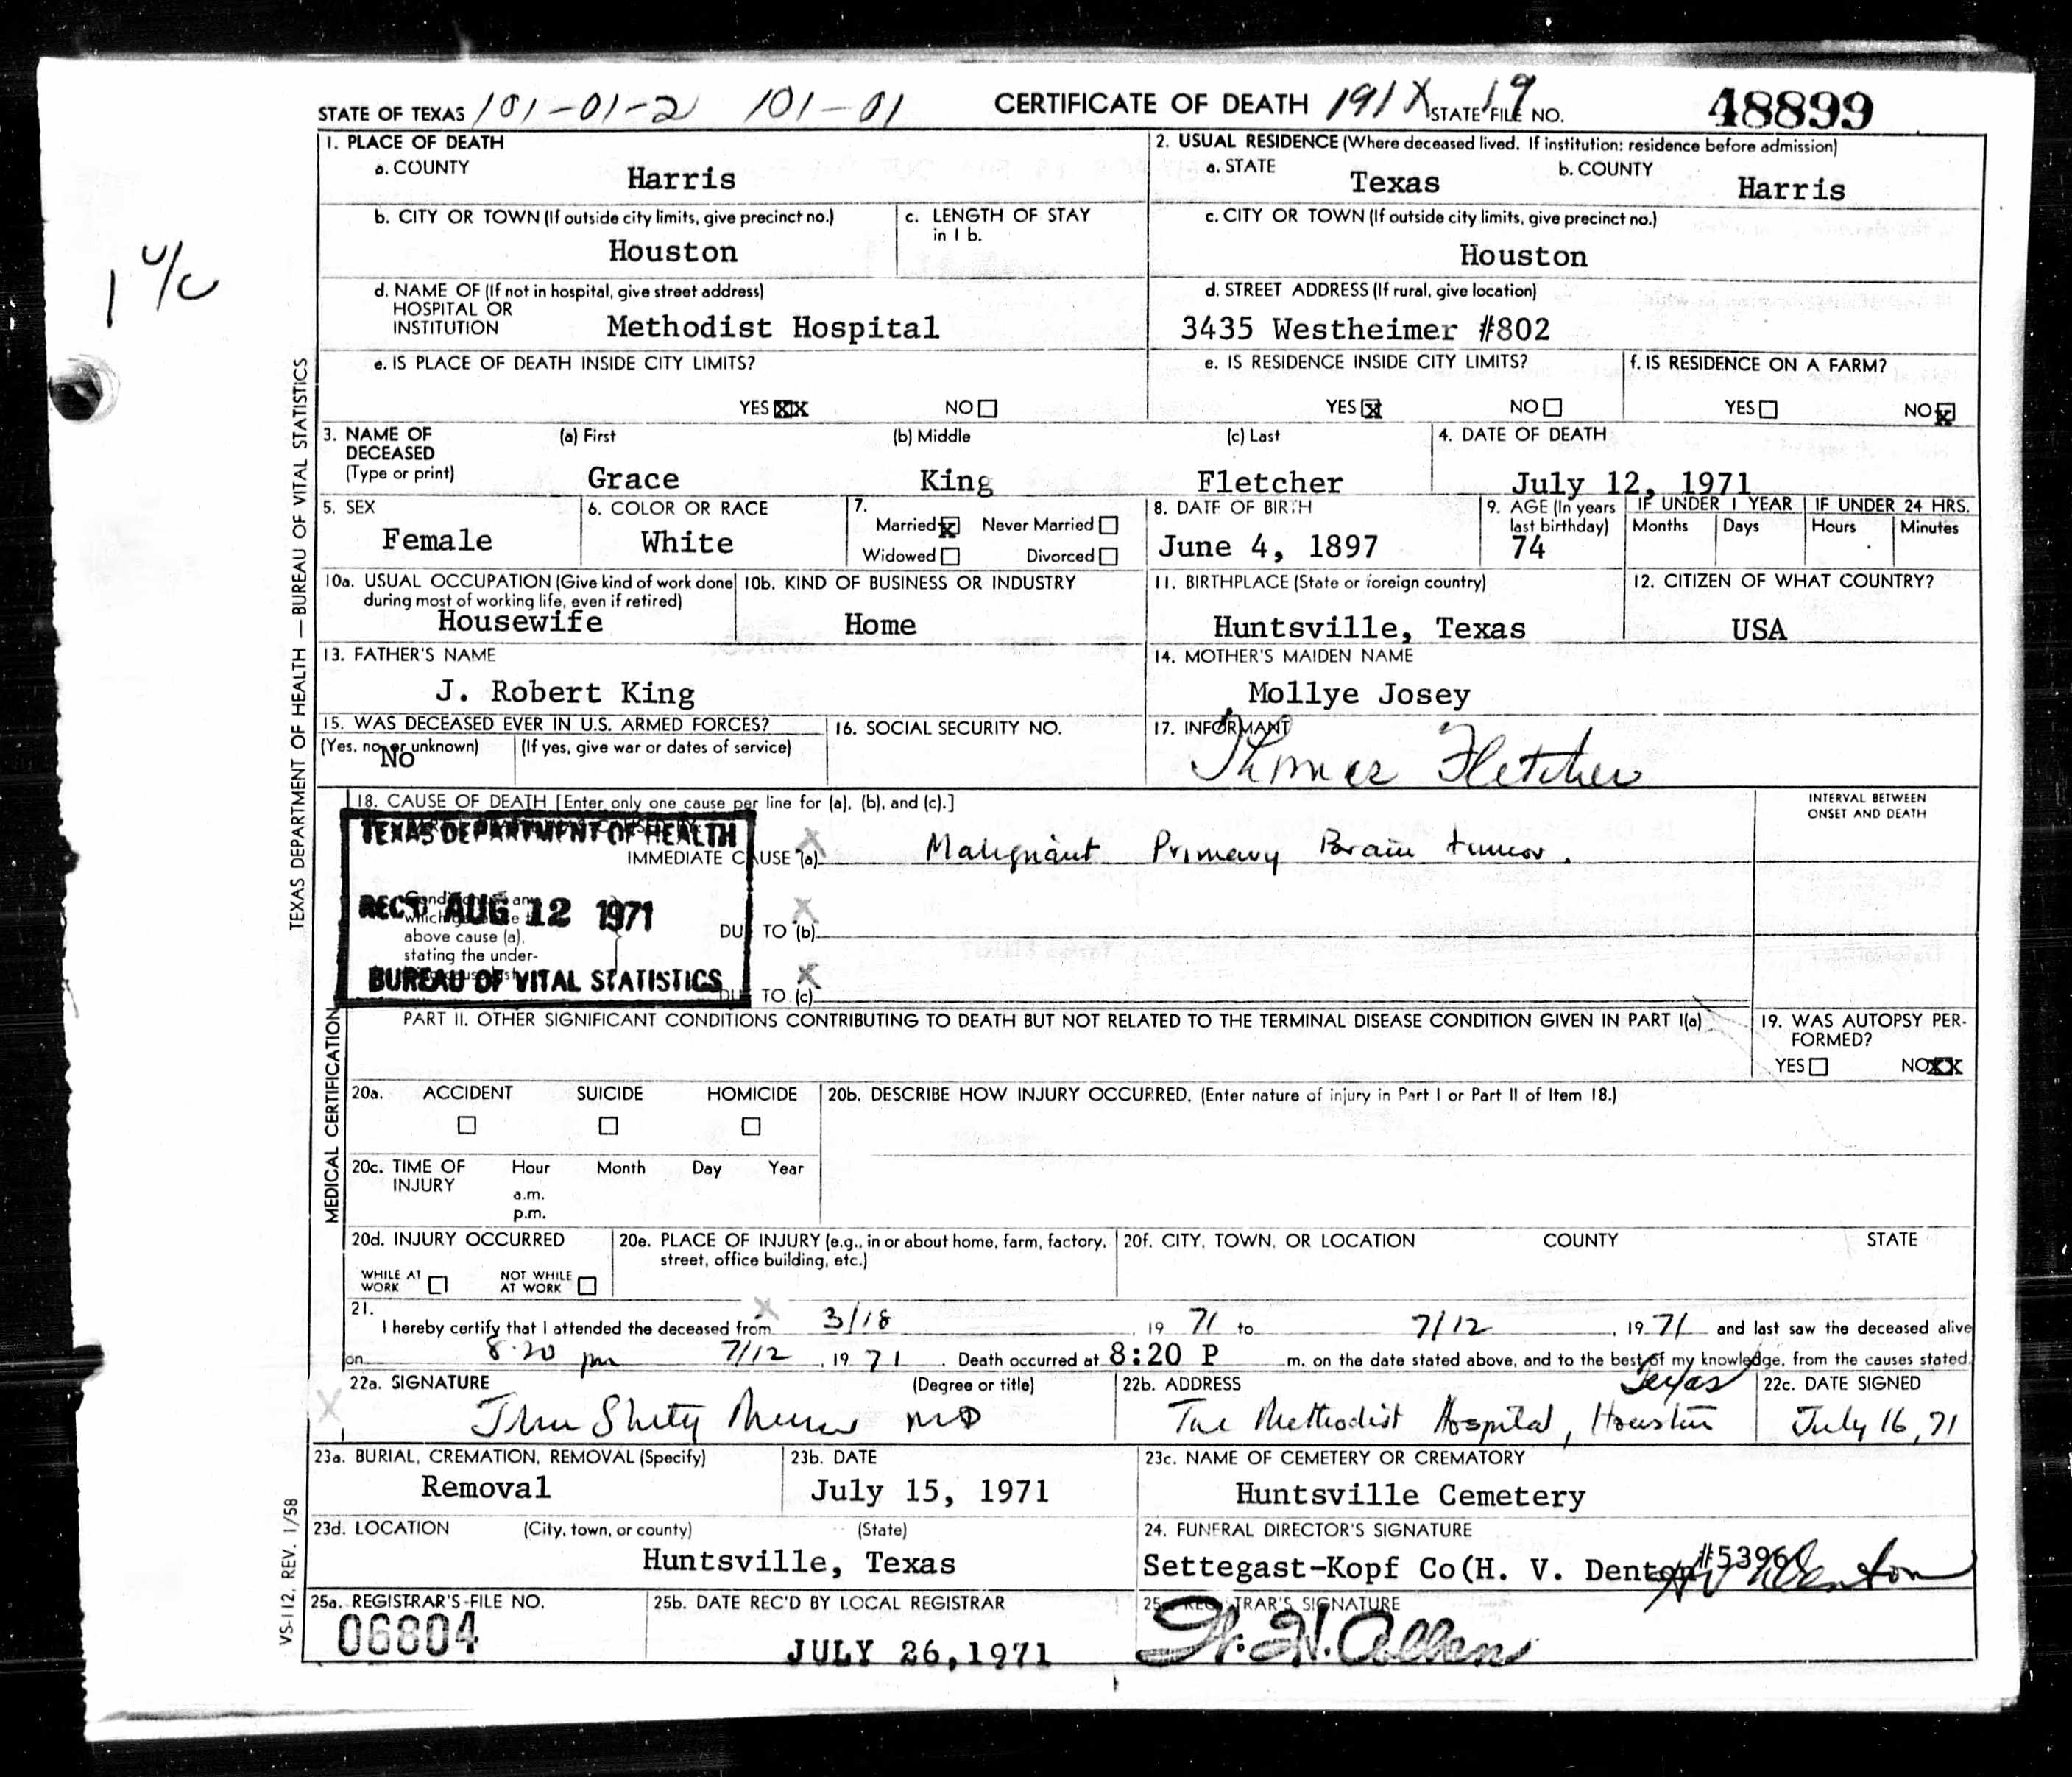 STATE OF TEXAS 101-01-2 101-01 CERTIFICATE OF DEATH 191X 19 STATE FILE NO. 48899
1. PLACE OF DEATH
a. COUNTY Harris
2. USUAL RESIDENCE (Where deceased lived. If institution: residence before admission)
a. STATE Texas b. COUNTY Harris
b. CITY OR TOWN (If outside city limits, give precinct no.) Houston
c. LENGTH OF STAY in 1 b.
c. CITY OR TOWN (If outside city limits, give precinct no.) Houston
d. NAME OF (If not in hospital, give street address)
HOSPITAL OR
INSTITUTION Methodist Hospital
d. STREET ADDRESS (If rural, give location)
3435 Westheimer #802
e. IS PLACE OF DEATH INSIDE CITY LIMITS?
YES XX NO
e. IS RESIDENCE INSIDE CITY LIMITS?
YES X NO
f. IS RESIDENCE ON A FARM?
YES NO X
3. NAME OF DECEASED (Type or print)
(a) First (b) Middle (c) Last
Grace King Fletcher
4. DATE OF DEATH
July 12, 1971
5. SEX
Female
6. COLOR OR RACE
White
7.
Married X Never Married
Widowed Divorced
8. DATE OF BIRTH
June 4, 1897
9. AGE (In years last birthday)
74
IF UNDER 1 YEAR
Months Days
IF UNDER 24 HRS.
Hours Minutes
10a. USUAL OCCUPATION (Give kind of work done
during most of working life, even if retired)
Housewife
10b. KIND OF BUSINESS OR INDUSTRY
Home
11. BIRTHPLACE (State or foreign country)
Huntsville, Texas
12. CITIZEN OF WHAT COUNTRY?
USA
13. FATHER'S NAME
J. Robert King
14. MOTHER'S MAIDEN NAME
Mollye Josey
15. WAS DECEASED EVER IN U.S. ARMED FORCES?
(Yes, no, or unknown) (If yes, give war or dates of service)
No
16. SOCIAL SECURITY NO.
17. INFORMANT
Thomas Fletcher
18. CAUSE OF DEATH [Enter only one cause per line for (a), (b), and (c).]
INTERVAL BETWEEN
ONSET AND DEATH
TEXAS DEPARTMENT OF HEALTH
IMMEDIATE CAUSE (a) Malignant Primary Brain tumor.
REC'D AUG 12 1971
above cause (a),
stating the under-
DUE TO (b)
BUREAU OF VITAL STATISTICS
DUE TO (c)
PART II. OTHER SIGNIFICANT CONDITIONS CONTRIBUTING TO DEATH BUT NOT RELATED TO THE TERMINAL DISEASE CONDITION GIVEN IN PART I(a)
19. WAS AUTOPSY PER-
FORMED?
YES NO XX
20a. ACCIDENT SUICIDE HOMICIDE
20b. DESCRIBE HOW INJURY OCCURRED. (Enter nature of injury in Part I or Part II of Item 18.)
20c. TIME OF INJURY Hour Month Day Year
a.m.
p.m.
20d. INJURY OCCURRED
WHILE AT WORK NOT WHILE AT WORK
20e. PLACE OF INJURY (e.g., in or about home, farm, factory,
street, office building, etc.)
20f. CITY, TOWN, OR LOCATION COUNTY STATE
21.
I hereby certify that I attended the deceased from 3/18, 19 71 to 7/12, 19 71 and last saw the deceased alive
on 8:20 pm 7/12, 19 71. Death occurred at 8:20 P m. on the date stated above, and to the best of my knowledge, from the causes stated.
22a. SIGNATURE (Degree or title)
MD
22b. ADDRESS
The Methodist Hospital, Houston Texas
22c. DATE SIGNED
July 16, 71
23a. BURIAL, CREMATION, REMOVAL (Specify)
Removal
23b. DATE
July 15, 1971
23c. NAME OF CEMETERY OR CREMATORY
Huntsville Cemetery
23d. LOCATION (City, town, or county) (State)
Huntsville, Texas
24. FUNERAL DIRECTOR'S SIGNATURE
Settegast-Kopf Co(H. V. Denton #5396 HV Denton
25a. REGISTRAR'S FILE NO.
06804
25b. DATE REC'D BY LOCAL REGISTRAR
JULY 26,1971
REGISTRAR'S SIGNATURE
W. N. Allen
TEXAS DEPARTMENT OF HEALTH — BUREAU OF VITAL STATISTICS
MEDICAL CERTIFICATION
VS-112, REV. 1/58